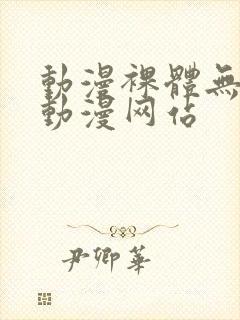 動漫裸體無
動漫网佔
尹卿華